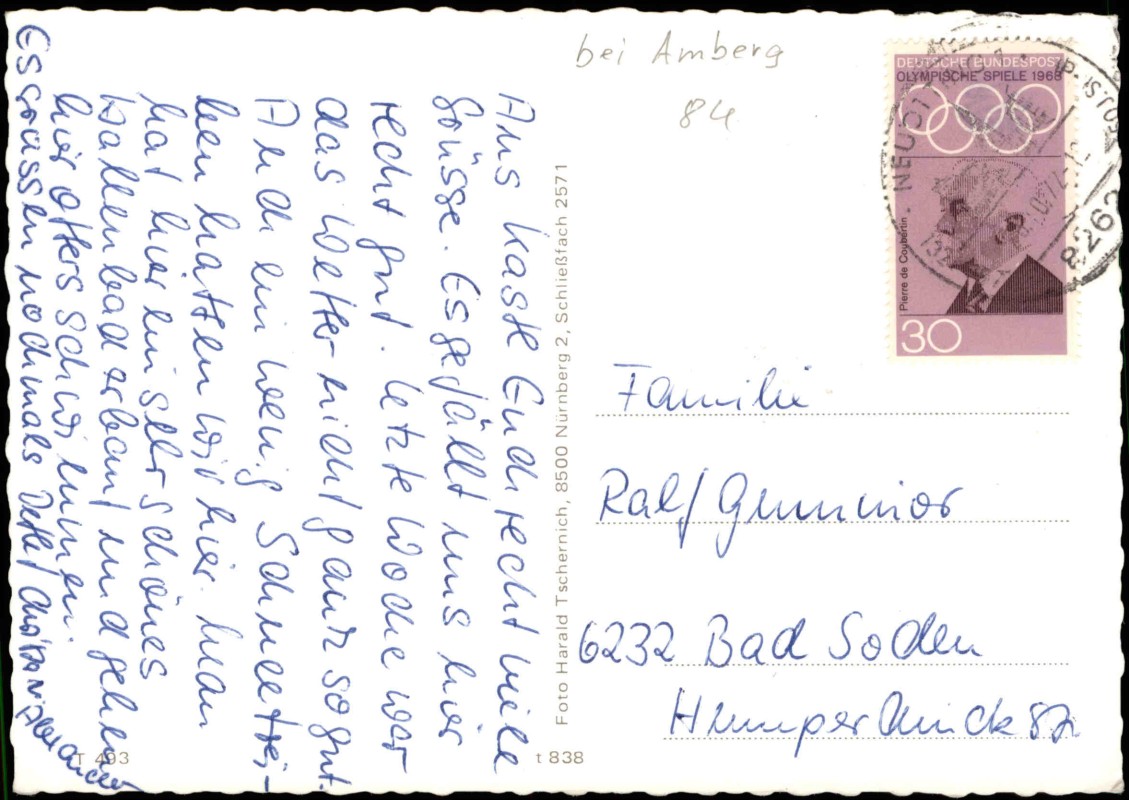 bei Amberg
84
DEUTSCHE BUNDESPOST
OLYMPISCHE SPIELE 1968
Pierre de Coubertin
30
NEUÖTTING
8262
Aus Kastl Euch recht viele
Grüsse. Es gefällt uns hier
recht gut. Letzte Woche war
das Wetter nicht ganz so gut.
Auch ein wenig Schneetrei-
ben hatten wir hier. Man
hat hier ein sehr schönes
Hallenbad erbaut und gehen
hier öfters schwimmen.
Es grüssen nochmals
Foto Harald Tschernich, 8500 Nürnberg 2, Schließfach 2571
Familie
Ralf
6232 Bad Soden
T 493
t 838